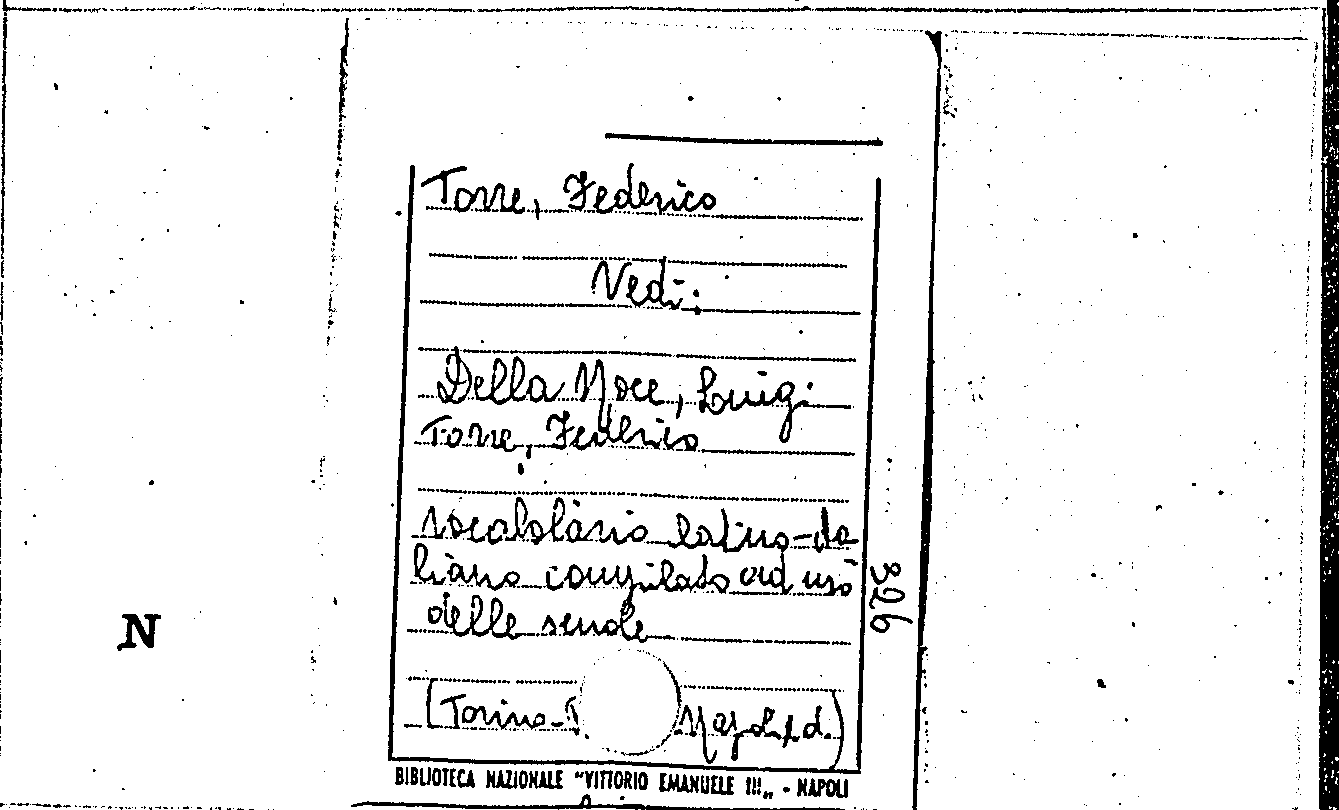 Torre, Federico
Vedi:
Della Noce, Luigi
Torre, Federico
vocabolario latino-ita
liano compilato ad uso
delle scuole
(Torino- Napoli, s.d.)
326
N
BIBLIOTECA NAZIONALE "VITTORIO EMANUELE III" - NAPOLI